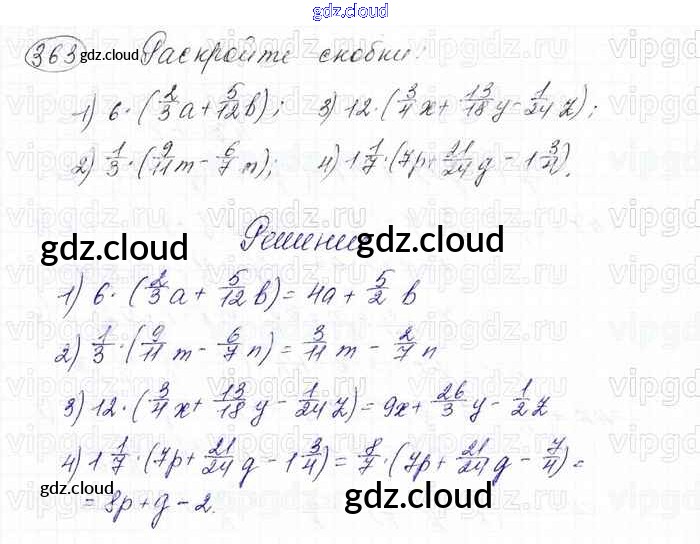 gdz.cloud
363 gdz.cloud Раскройте скобки:
1) 6 · (2/3 a + 5/12 b); 3) 12 · (3/4 x + 13/18 y - 1/24 z);
2) 1/3 · (9/11 m - 6/7 n); 4) 1 1/7 · (7p + 21/24 q - 1 3/4).
gdz.cloud Решение gdz.cloud
1) 6 · (2/3 a + 5/12 b) = 4a + 5/2 b
2) 1/3 · (9/11 m - 6/7 n) = 3/11 m - 2/7 n
3) 12 · (3/4 x + 13/18 y - 1/24 z) = 9x + 26/3 y - 1/2 z
4) 1 1/7 · (7p + 21/24 q - 1 3/4) = 8/7 · (7p + 21/24 q - 7/4) =
gdz.cloud gdz.cloud
= 8p + q - 2.